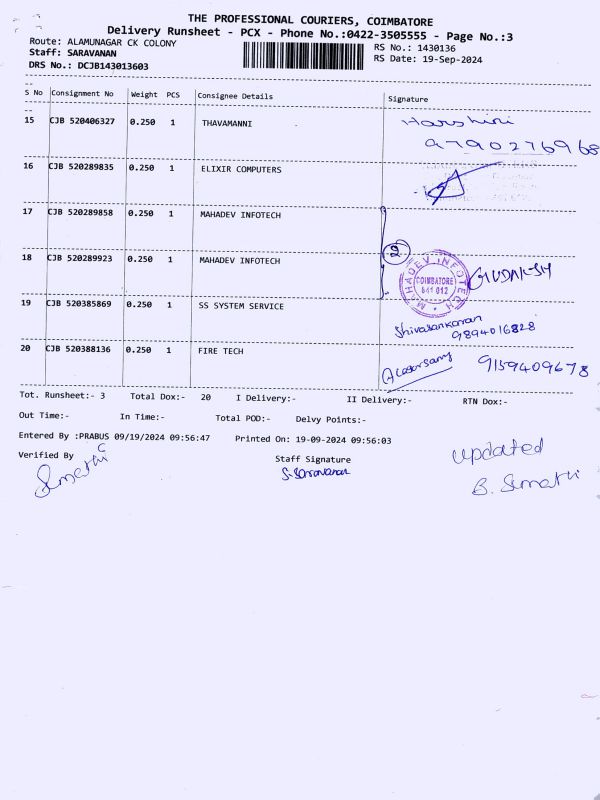 THE PROFESSIONAL COURIERS, COIMBATORE
Delivery Runsheet - PCX - Phone No.:0422-3505555 - Page No.:3
Route: ALAMUNAGAR CK COLONY
Staff: SARAVANAN
DRS No.: DCJB143013603
RS No.: 1430136
RS Date: 19-Sep-2024
S No Consignment No Weight PCS Consignee Details Signature
15 CJB 520406327 0.250 1 THAVAMANNI Harshini
9790276968
16 CJB 520289835 0.250 1 ELIXIR COMPUTERS
17 CJB 520289858 0.250 1 MAHADEV INFOTECH
2
18 CJB 520289923 0.250 1 MAHADEV INFOTECH
MAHADEV INFOTECH
COIMBATORE
641 012
19 CJB 520385869 0.250 1 SS SYSTEM SERVICE
Shivasankaran
9894016828
20 CJB 520388136 0.250 1 FIRE TECH 9159409678
Tot. Runsheet:- 3 Total Dox:- 20 I Delivery:- II Delivery:- RTN Dox:-
Out Time:- In Time:- Total POD:- Delvy Points:-
Entered By :PRABUS 09/19/2024 09:56:47 Printed On: 19-09-2024 09:56:03
Verified By Staff Signature
S. Saravanan
updated
B. Sumathi